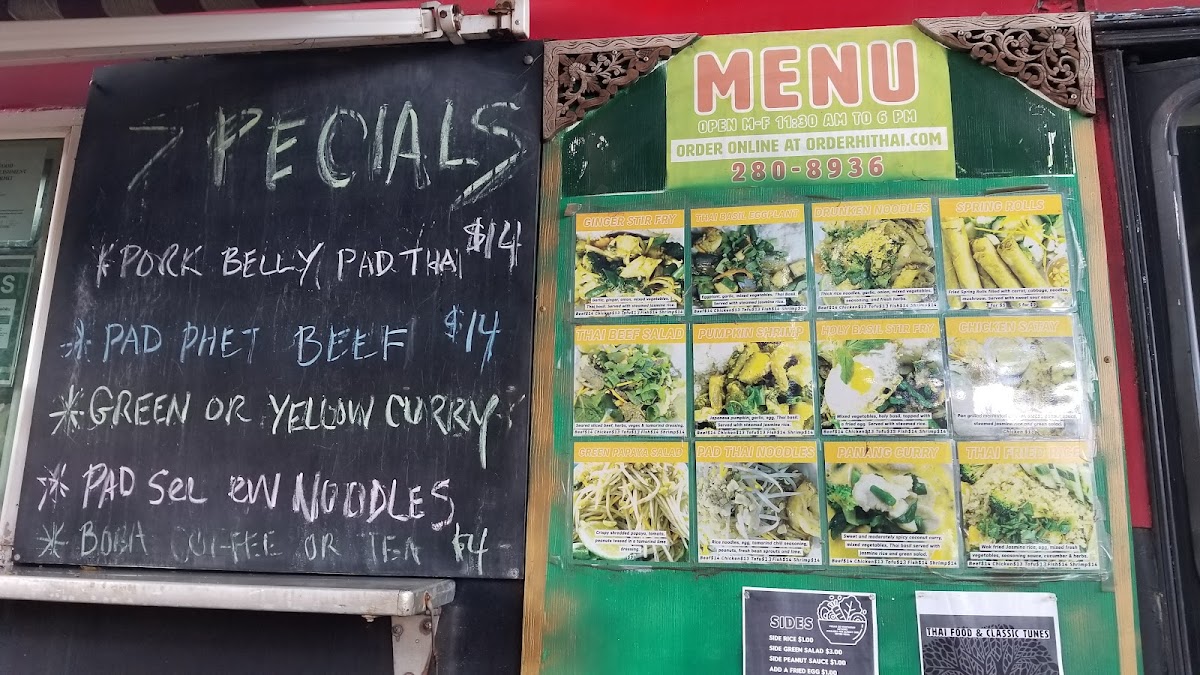 SPECIALS
* PORK BELLY PAD THAI $14
* PAD PHET BEEF $14
* GREEN OR YELLOW CURRY
* PAD SEE EW NOODLES
* BOBA COFFEE OR TEA $4
MENU
OPEN M-F 11:30 AM TO 6 PM
ORDER ONLINE AT ORDERHITHAI.COM
280-8936
GINGER STIR FRY
garlic, ginger, onion, mixed vegetables,
Thai basil. Served with steamed jasmine rice.
Beef$14 Chicken$13 Tofu$13 Fish$14 Shrimp$14
THAI BASIL EGGPLANT
Eggplant, garlic, mixed vegetables, Thai basil.
Served with steamed jasmine rice.
Beef$14 Chicken$13 Tofu$13 Fish$14 Shrimp$14
DRUNKEN NOODLES
Thick rice noodles, garlic, onion, mixed vegetables,
seasoning, and fresh herbs.
Beef$14 Chicken$13 Tofu$13 Fish$14 Shrimp$14
SPRING ROLLS
Fried Spring Rolls filled with carrots, cabbage, noodles,
mushroom. Served with sweet sour sauce
THAI BEEF SALAD
Seared sliced beef, herbs, veges & tamarind dressing.
PUMPKIN SHRIMP
Japanese pumpkin, garlic, egg, Thai basil.
Served with steamed jasmine rice.
Beef$14 Chicken$13 Tofu$13 Fish$14 Shrimp$14
HOLY BASIL STIR FRY
Mixed vegetables, holy basil, topped with
a fried egg. Served with steamed rice.
Beef$14 Chicken$13 Tofu$13 Fish$14 Shrimp$14
CHICKEN SATAY
steamed jasmine rice and green salad.
GREEN PAPAYA SALAD
Crispy shredded papaya, tomato,
peanuts tossed in a tomato
dressing.
PAD THAI NOODLES
Rice noodles, egg, tamarind chili seasoning,
peanuts, fresh bean sprouts and lime.
Beef$14 Chicken$13 Tofu$13 Fish$14 Shrimp$14
PANANG CURRY
Sweet and moderately spicy coconut curry,
mixed vegetables, Thai basil served with
jasmine rice and green salad.
Beef$14 Chicken$13 Tofu$13 Fish$14 Shrimp$14
THAI FRIED RICE
Wok fried Jasmine rice, egg, mixed fresh
vegetables, seasoning sauce, cucumber & herbs.
Beef$14 Chicken$13 Tofu$13 Fish$14 Shrimp$14
SIDES
SIDE RICE $1.00
SIDE GREEN SALAD $3.00
SIDE PEANUT SAUCE $1.00
ADD A FRIED EGG $1.00
THAI FOOD & CLASSIC TUNES